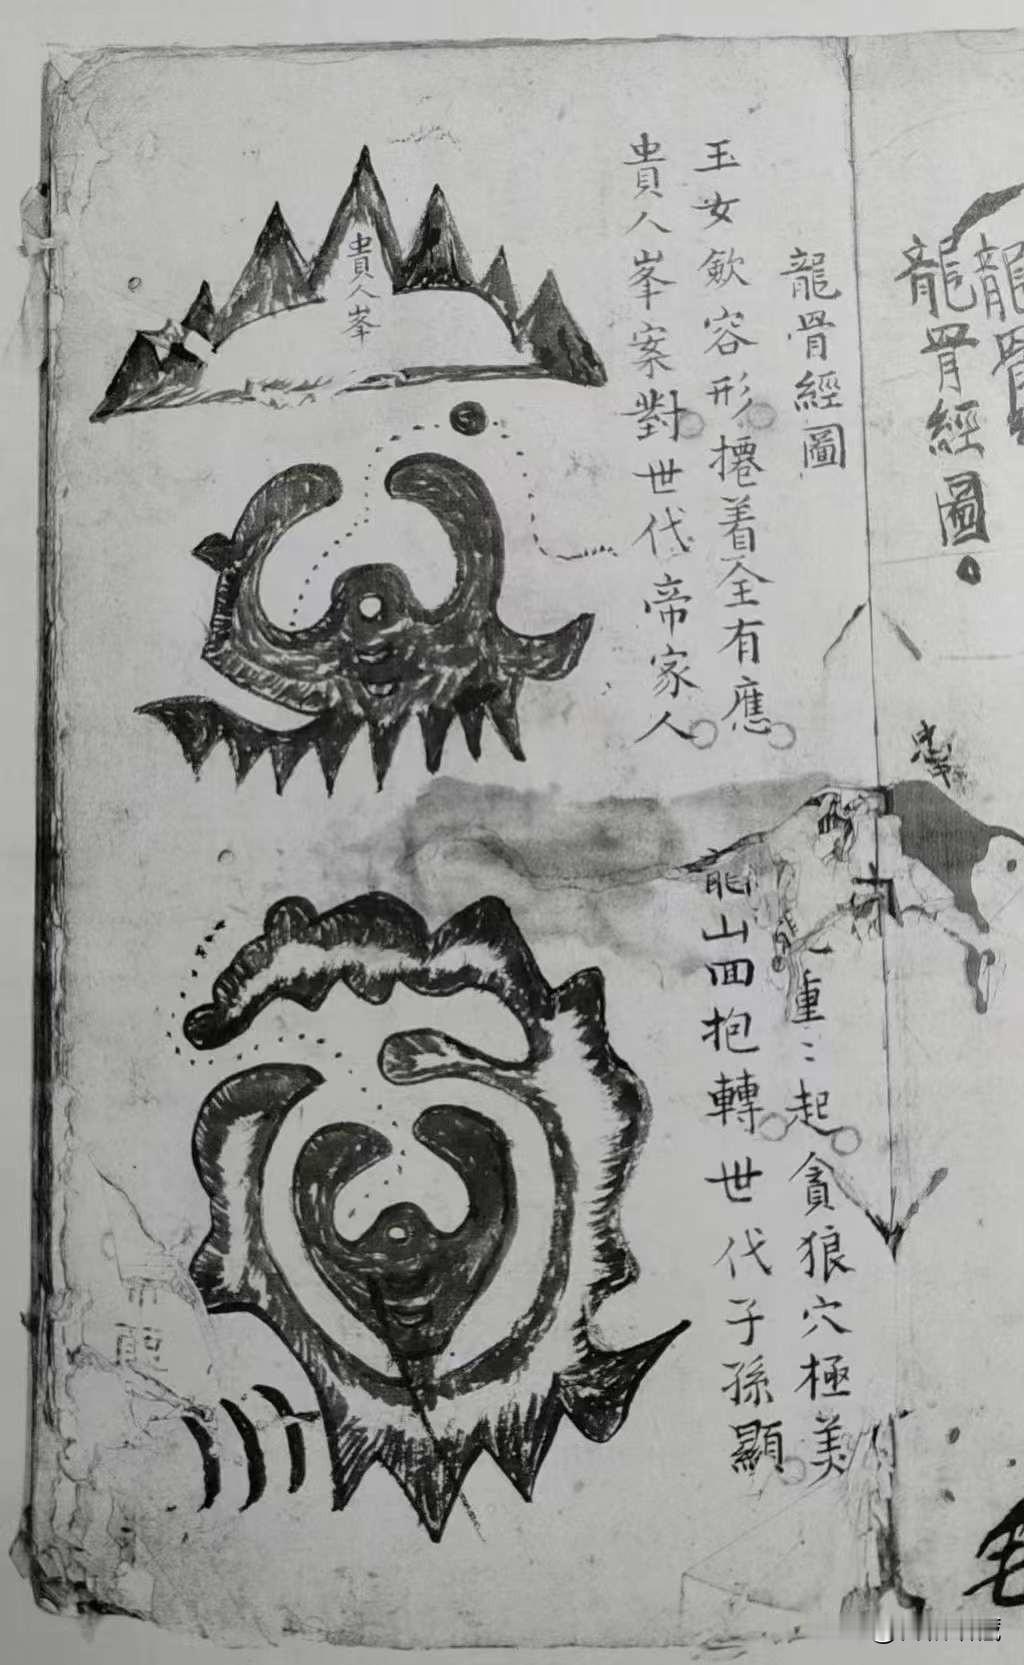 龍骨經圖
龍骨經圖
玉女歛容形捲着全有應
貴人峯案對世代帝家人
貴人峯
重〻起貪狼穴極美
山回抱轉世代子孫顯